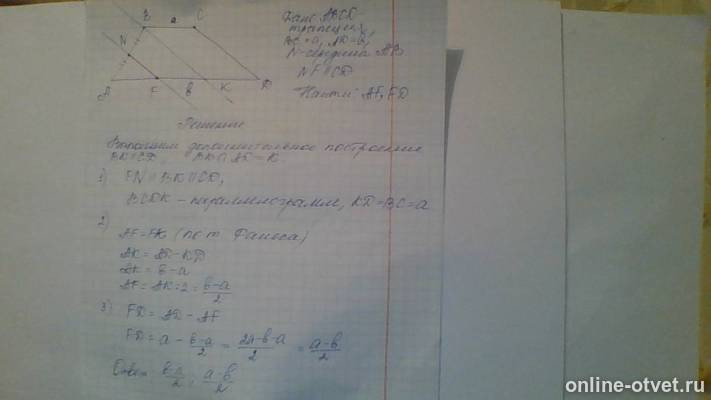 B a C
N
A F в K D
Дано: ABCD
трапеция,
BC=a, AD=в,
N-середина AB
NF||CD
Найти: AF, FD
Решение
Выполним дополнительное построение
BK||CD, BK∩AD=K.
1) FN||BK||CD,
BCDK - параллелограмм, KD=BC=a
2)
AF=FK (по т. Фалеса)
AK = AD-KD
AK = в-a
AF = AK:2 = в-a/2
3) FD = AD - AF
FD = a - в-a/2 = 2a-в-a/2 = a-в/2
Ответ: в-a/2; a-в/2
online-otvet.ru